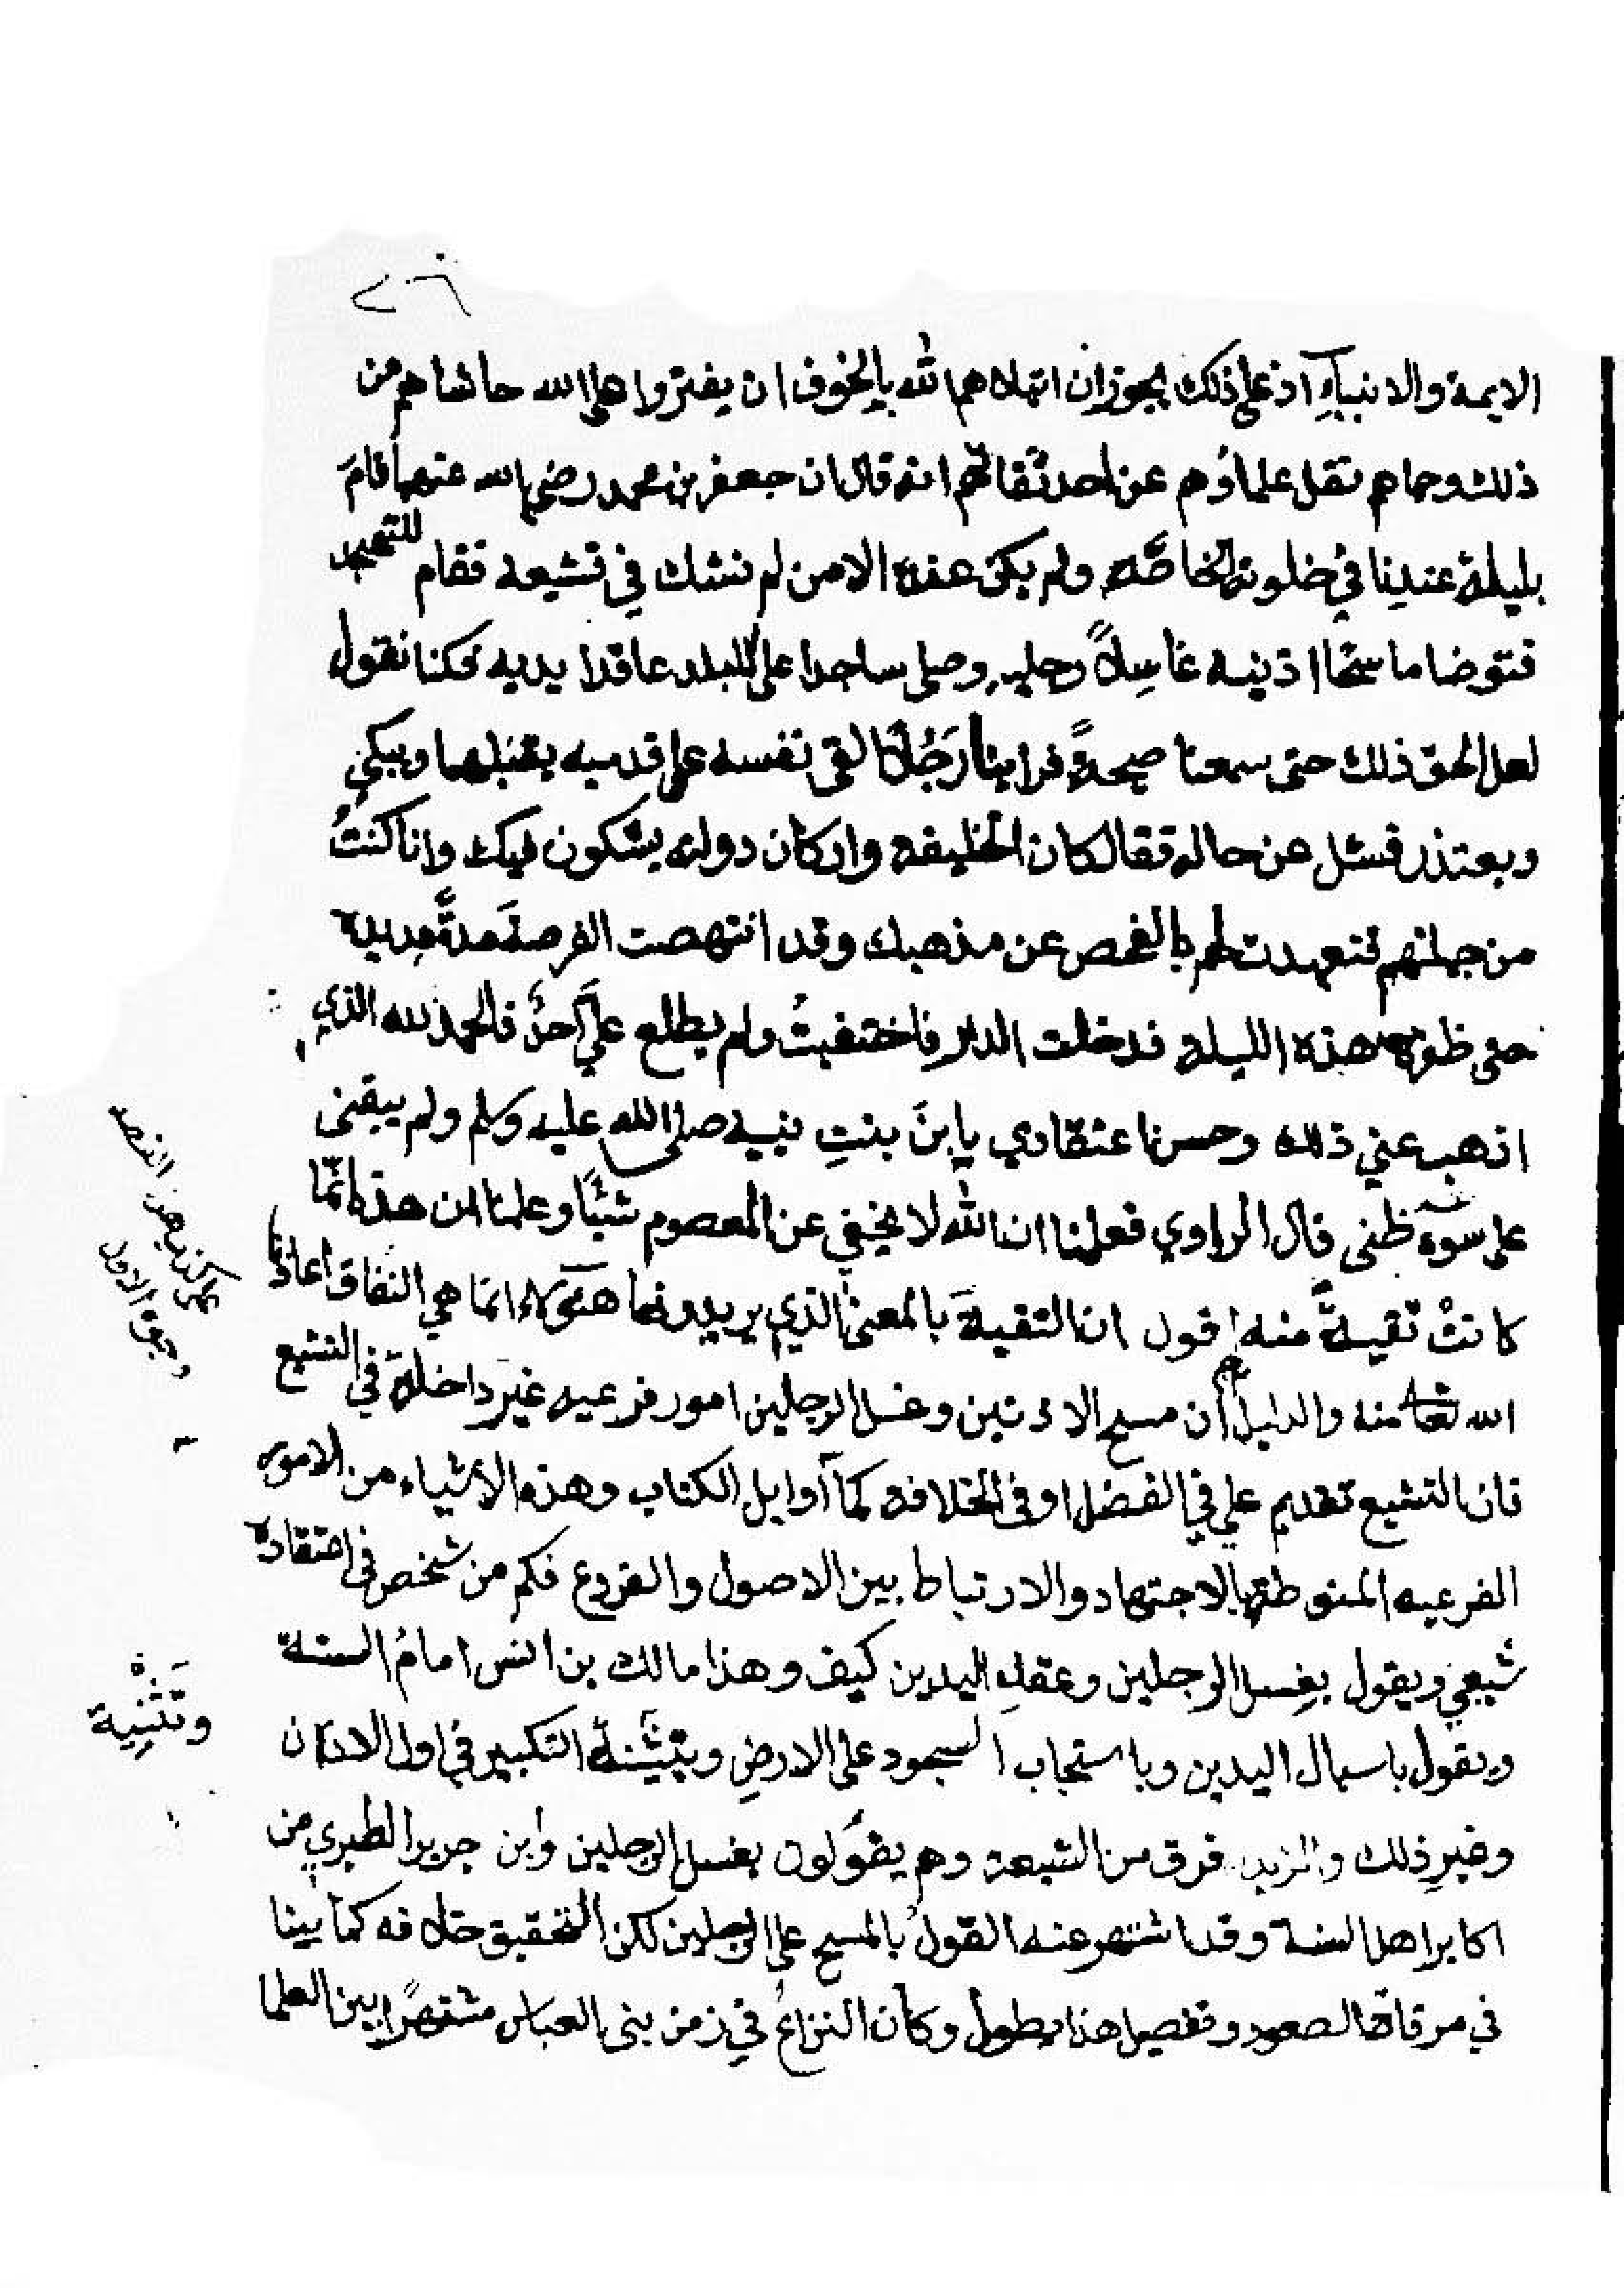 الايمة والانبياء اذ على ذلك يجوز ان ابتلاهم الله بالخوف ان يفتروا على الله حاشاهم من
ذلك ومما هم نقل علماؤهم عن احد ثقاتهم انه قال ان جعفر بن محمد رضي الله عنهما قام
بليلة عندنا في خلوته الخاصّة ولم يكن عنده الا من لم نشك في تشيعه فقام للتهجد
فتوضا ماسحا اذنيه غاسلاً رجليه وصلى ساجدا على اللبد عاقدا يديه وكنا نقول
لعل الحق ذلك حتى سمعنا صيحةً فراينا رَجُلا القى نفسه على قدميه يقبلهما ويبكي
ويعتذر فسئل عن حاله فقال كان الخليفه واركان دولته يشكون فيك وانا كنتُ
من جملتهم فتعهدت لهم بالفحص عن مذهبك وقد انتهصت الفرصة مدةً مديدة
حتى ظفرت هذه الليلة فدخلت الدار فاختفيتُ ولم يطلع عليَّ احدٌ فالحمد لله الذي
اذهب عني ذلك وحسن اعتقادي يا ابنَ بنتِ نبيه صلى الله عليه وسلم ولم يبقني
على سوء ظني قال الراوي فعلمنا ان الله لا يخفي عن المعصوم شيئًا وعلمنا ان هذه انمّا
كانتْ تقيةً منه اقول ان التقيةَ بالمعنى الذي يريدونها هؤلاء انما هي النفاق اعاذنا
الله تعالى منه والدليل أن مسح الاذنين وغسل الرجلين امور فرعيه غيرَ داخلة في التشيع
فان التشيع تقديم علي في الفضل او في الخلافه كما اوايل الكتاب وهذه الاشياء من الامور
الفرعيه المنوطة بالاجتهاد والارتباط بين الاصول والفروع فكم من شخص في اعتقاده
شيعي ويقول بغسل الرجلين وعقدِ اليدين كيف وهذا مالك بن انس امامُ السنة
ويقول باسبال اليدين وباستحباب السجود على الارضِ وبتثنية التكبير في اول الاذان
وغيرِ ذلك والزيديه فرق من الشيعة وهم يقولون بغسل الرجلين وابن جرير الطبري من
اكابر اهل السنة وقد اشتهر عنه القولُ بالمسح على الرجلين لكن التحقيق خلافه كما بينا
في مرقاة الصعود وتفصيل هذا يطول وكان النزاعُ في زمن بني العباس مشتهرًا بين العلما
وتَثْنِية